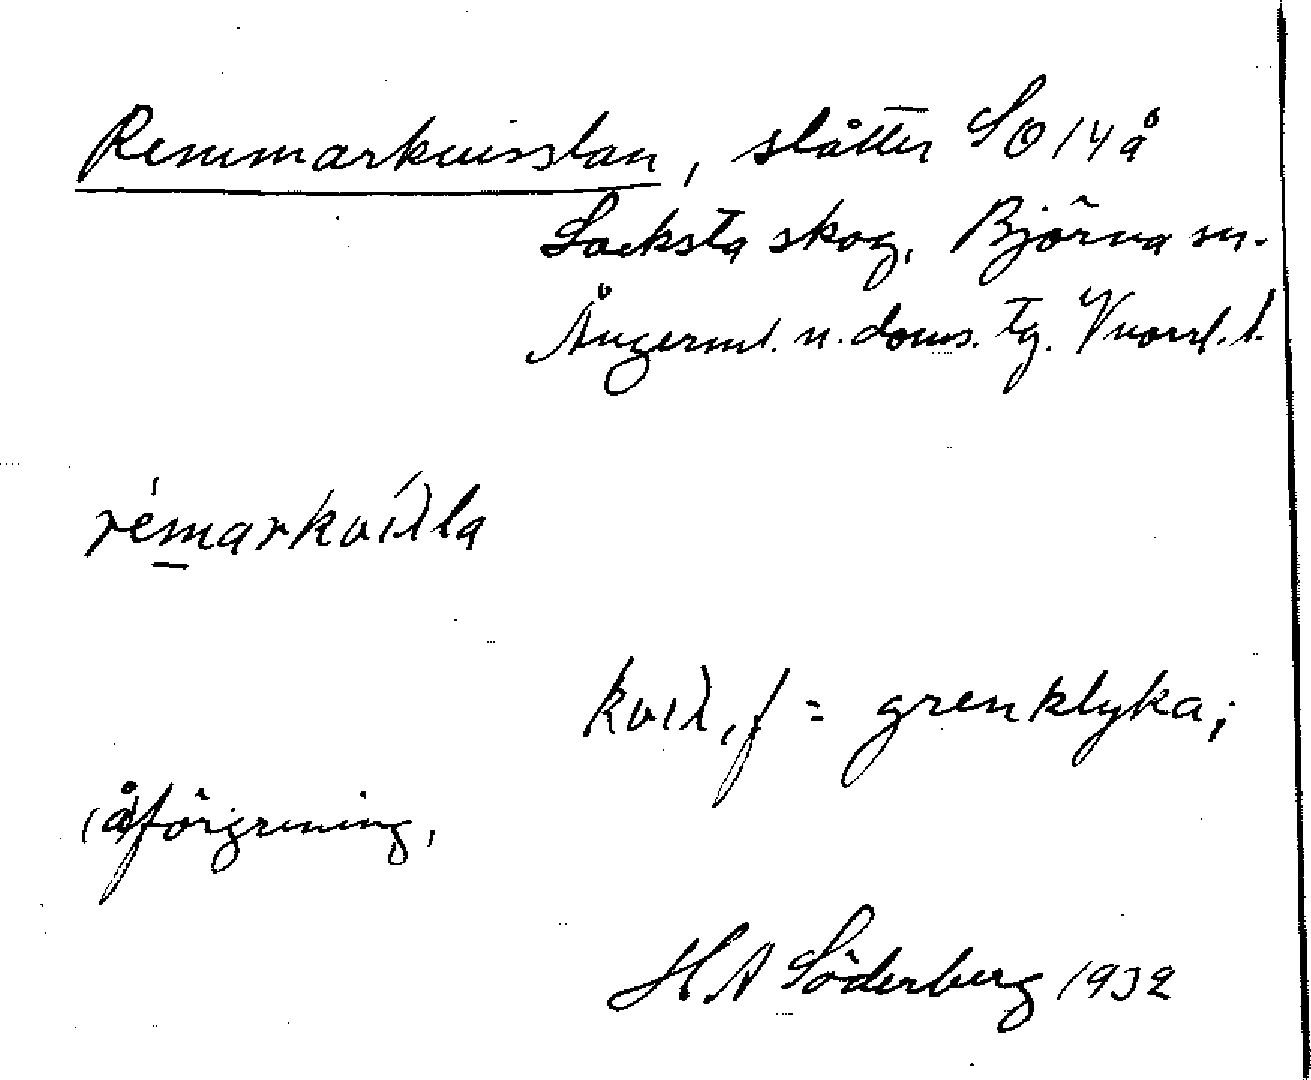 Remmarkvisslan, slåtter SO 14 å
Locksta skog, Björna sn.
Ångerml. n. doms. tg. Vnorrl. l.
rémarkvíƛla
kviƛ, f = grenklyka;
(å)förgrening,
H A Söderberg 1932